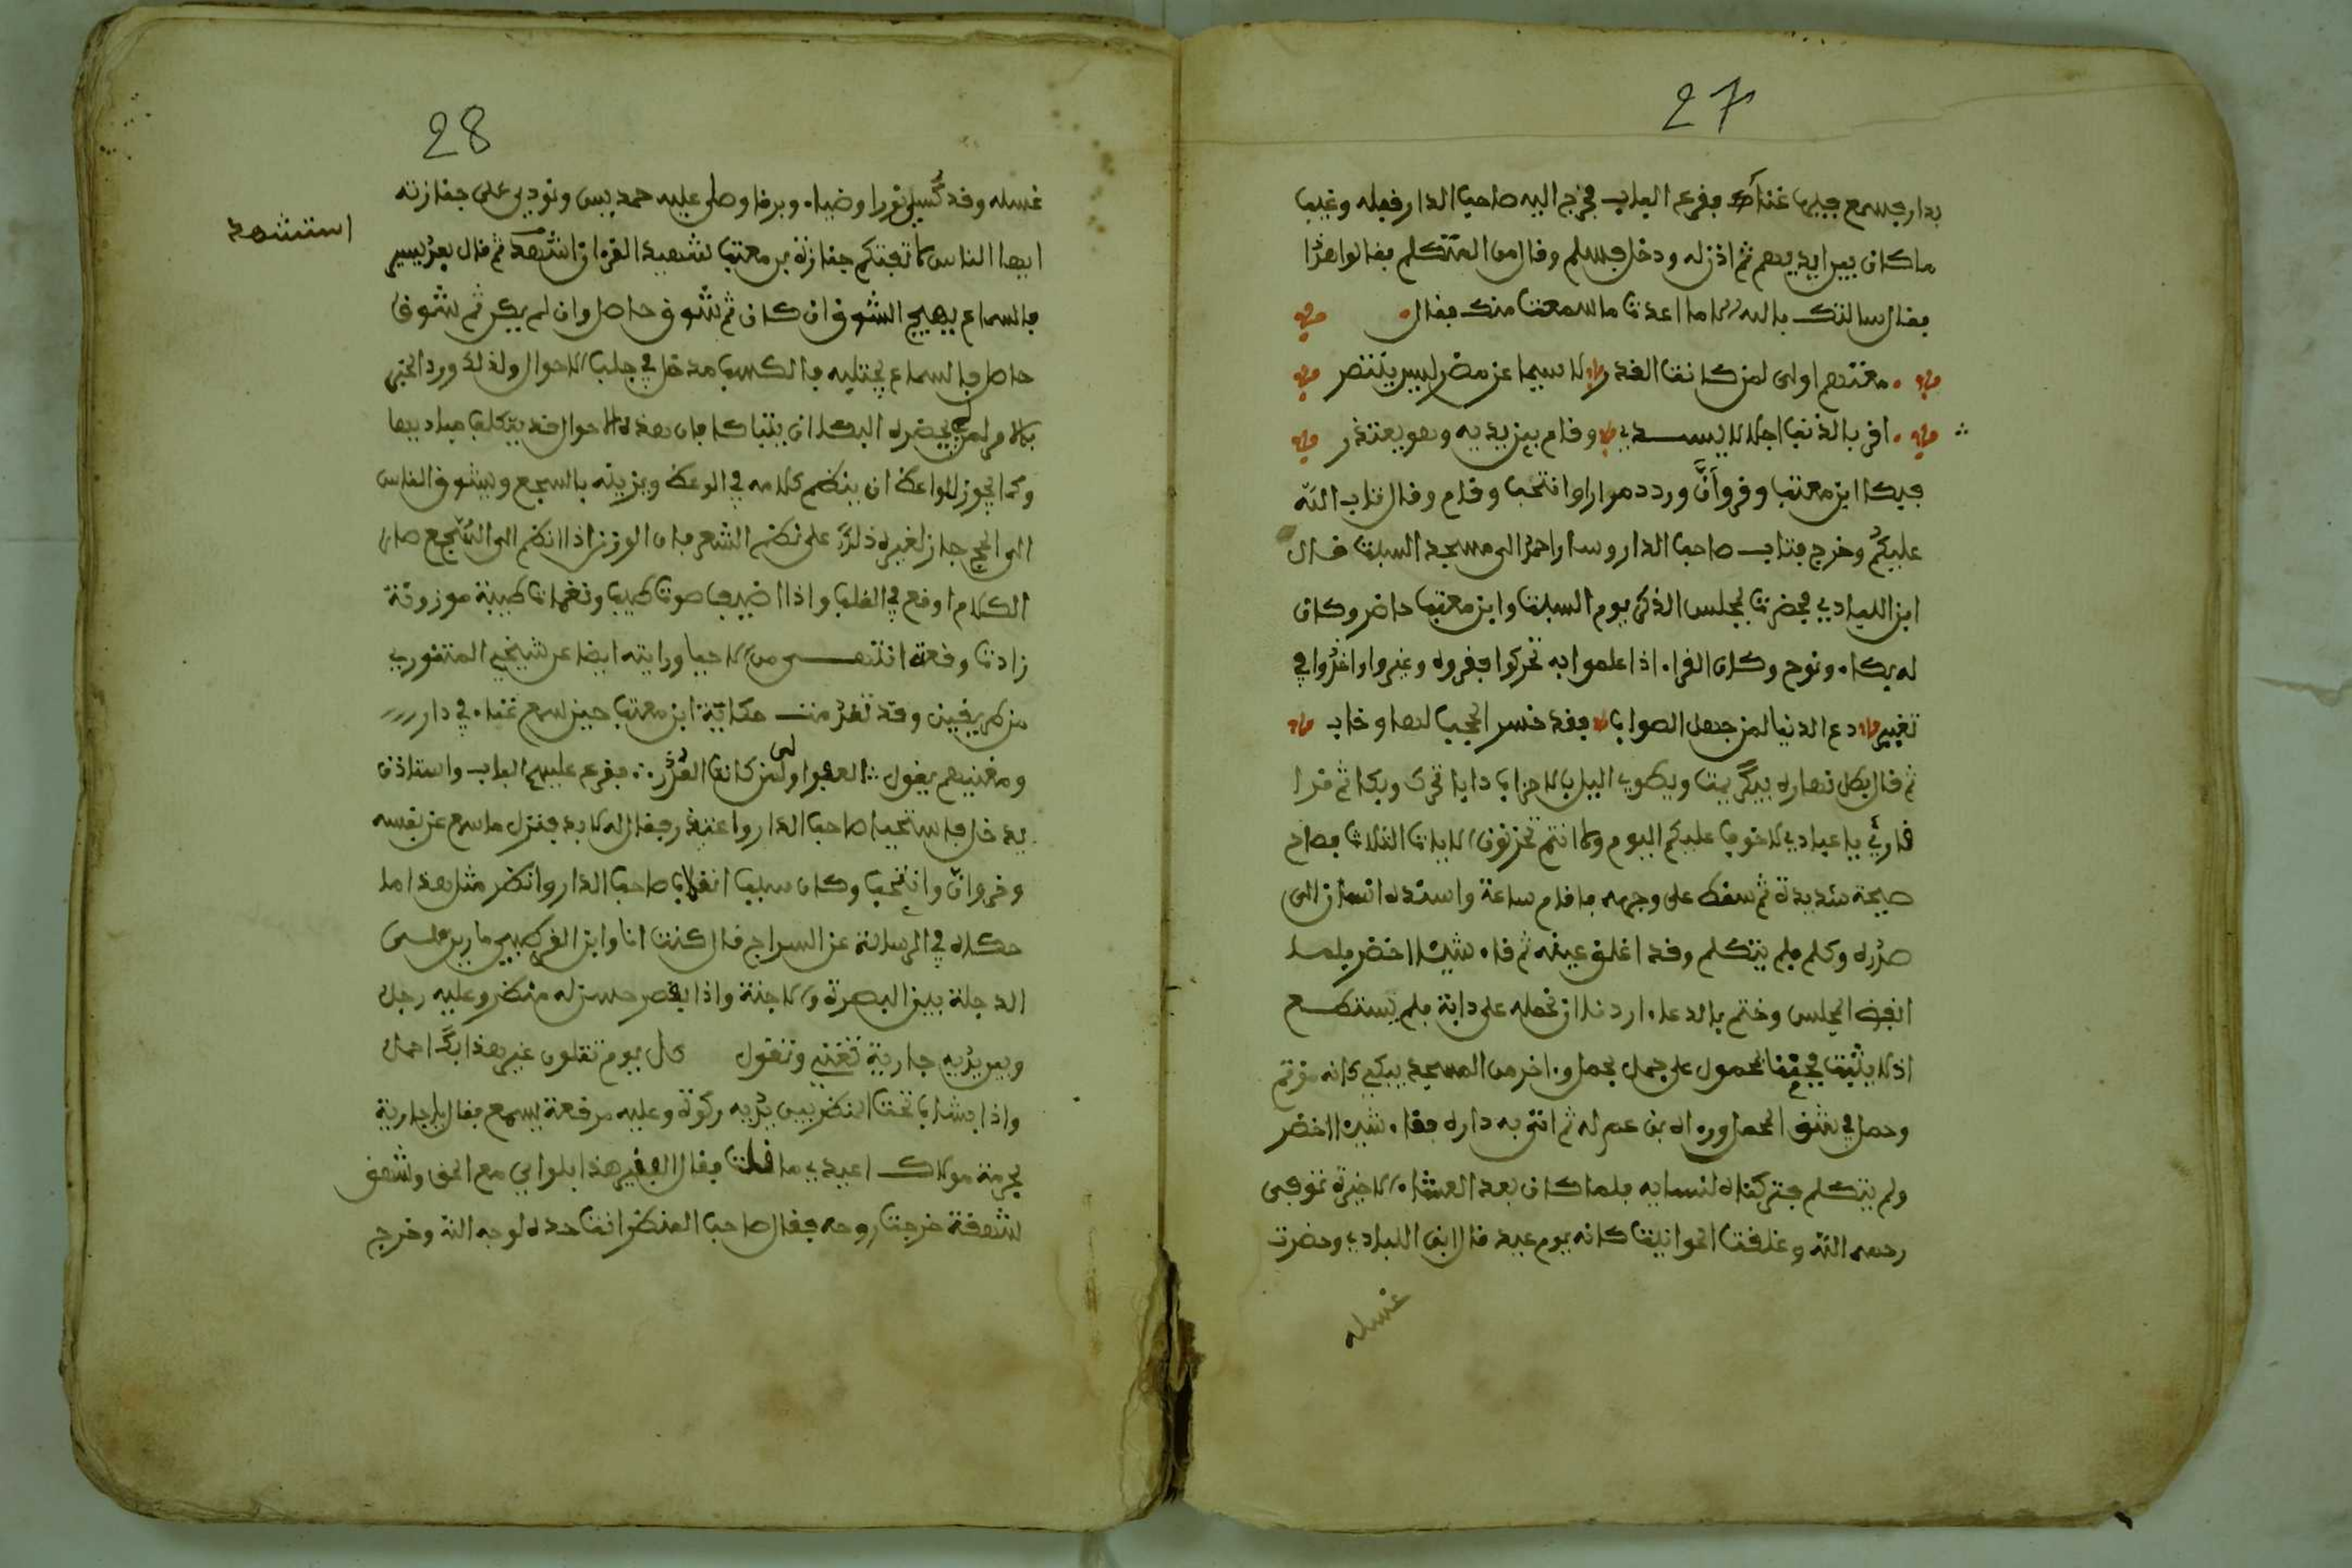 27
بدار فسمع فيها غناء ففرع الباب فخرج اليه صاحب الدار فقبله وغيب
ما كان بين ايديهم ثم اذن له ودخل فسلم وقال من المتكلم فقالوا هذا
فقال سالتك بالله الا ما اعدت ما سمعت منك فقال
اولى لمن كانت القدر لا سيما عن مضر ليس ينتصر
اقر بالذنب اجلالا لسيدي وقام بين يديه وهو يعتذر
فبكا ابن معتب وقرا وانّ وردد مرارا وانتحب وقام وقال تاب الله
عليكم وخرج فتاب صاحب الدار وسار احمد الى مسجد السبت قال
ابن اللبادي فحضرت مجلس الذكر يوم السبت وابن معتب حاضر وكان
له بكاء ونوح وكان القراء اذا علموا به تحركوا فقروه وغبروا واخذوا في
تغبير دع الدنيا لمن جهل الصوابا فقد خسر المحب لها وخاب
ثم قال يظل نهاره يبكي ببث ويطوي اليل بالاحزاب دابا تحرك وبكا ثم قرا
قارئ يا عبادي لا خوف عليكم اليوم ولا انتم تحزنون الايات الثلاث فصاح
صيحة شديدة ثم سقط على وجهه فاقام ساعة واسنده انسان الى
صدره وكلم فلم يتكلم وقد اغلق عينه ثم قاء شيئا اخضر فلما
انفض المجلس وختم بالدعاء اردنا ان نحمله على دابة فلم نستطع
اذ لا يثبت فجئنا بمحمول على جمل بحمل واخر من المسجد يبكي كانه مؤتم
وحمل في شق المحمل وراه بن عم له ثم اتى به داره فقاء شيئا اخضر
ولم يتكلم فتركناه لنسايه فلما كان بعد العشاء الاخيرة توفي
رحمه الله وغلقت الحوانيت كانه يوم عيد قال ابن اللبادي وحضرت
غسله
28
غسله وقد كسي نورا وضياء وبرقا وصلى عليه حمديس ونودي على جنازته
استشهد
ايها الناس لا تفتكم جنازة بن معتب شهيد القرءان استشهد ثم قال بعد يسير
فالسماع يهيج الشوق ان كان ثم شوق حاصل وان لم يكن ثم شوق
حاصل فالسماع يجتليه فالكسب مدخل في جلب الاحوال ولذلك ورد الخبر
بالامر لمن لم يحضره البكا ان يتباكا فان هذه الاحوال قد يتكلف مباديها
وكما يجوز للواعظ ان ينظم كلامه في الوعظ ويزينه بالسجع ويشوق الناس
الى الحج جاز لغيره ذلك على نظم الشعر فان الوزن اذا انظم الى السجع صار
الكلام اوقع في القلب واذا اضيف صوت طيب ونغمات طيبة موزونة
زادت وقعة انتهى من الاحيا ورايته ايضا عن شيخي المنتوري
من طريقين وقد تقدمت حكاية ابن معتب حين سمع غناء في دار
ومغنيهم يقول العفو اولى لمن كانت القدر ففرع عليهم الباب واستاذن
يدخل فاستحيا صاحب الدار واعتذر فقال له لا بد فنزل ما سمع عن نفسه
وقروانّ وانتحب وكان سبب انقلاب صاحب الدار وانظر مثل هذا ما
حكاه في الرسالة عن السراج قال كنت انا وابن الفوطيي مارين على
الدجلة بين البصرة والابلة واذا بقصر حسن له منظر وعليه رجل
وبين يديه جارية تغني وتقول كل يوم تتلون غير هذا بك اجمل
واذا بشاب تحت المنظر بين يديه ركوة وعليه مرقعة يسمع فقال يا جارية
بحرمة مولاك اعيدي ما قلت فقال الفقير هذا تلوني مع الحق وشهق
شهقة خرجت روحه فقال صاحب المنظر انت حرة لوجه الله وخرج